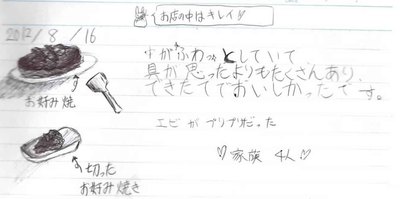 お店の中はキレイ!!
2012/8/16
すがふわっとしていて
具が思ったよりもたくさんあり、
できたてでおいしかったです。
お好み焼
エビがプリプリだった
♡家族 4人♡
切った
お好み焼き